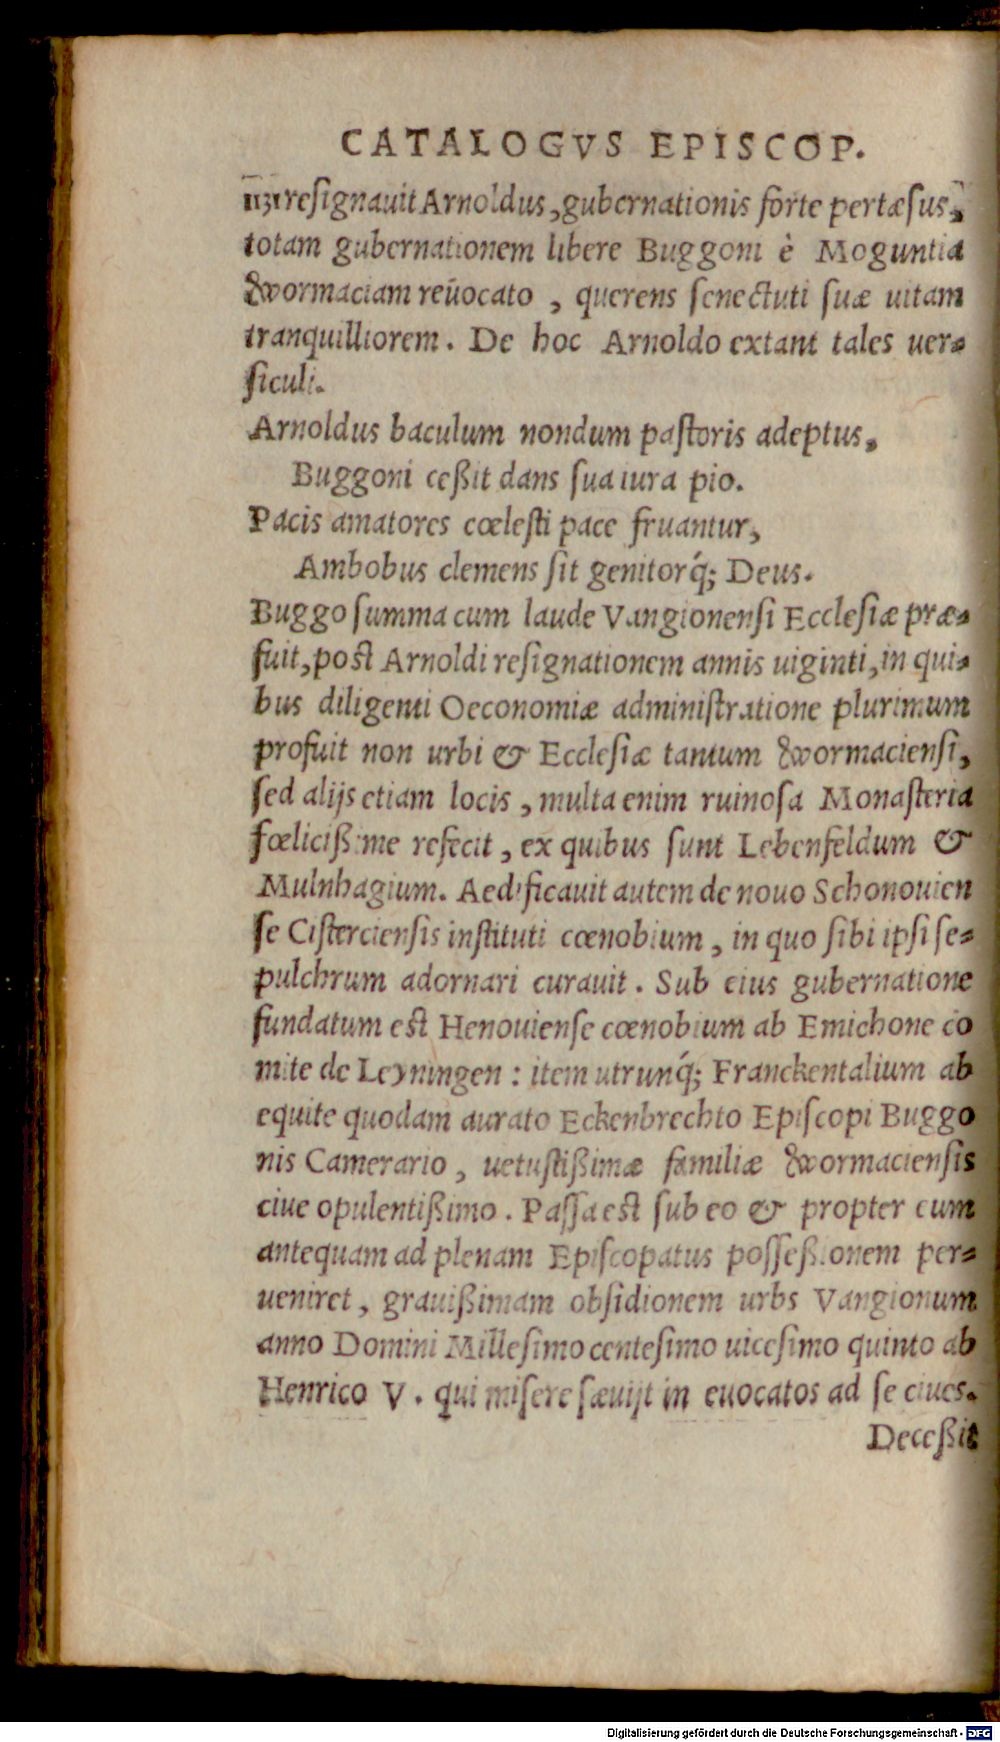 CATALOGVS EPISCOP.
1131 resignauit Arnoldus, gubernationis forte pertæsus,
totam gubernationem libere Buggoni è Moguntia
VVormaciam reuocato , querens senectuti suæ uitam
tranquilliorem. De hoc Arnoldo extant tales uer-
siculi.
Arnoldus baculum nondum pastoris adeptus,
Buggoni ceßit dans sua iura pio.
Pacis amatores cœlesti pace fruantur,
Ambobus clemens sit genitorq́; Deus.
Buggo summa cum laude Vangionensi Ecclesiæ præ-
fuit, post Arnoldi resignationem annis uiginti, in qui-
bus diligenti Oeconomiæ administratione plurimum
profuit non urbi & Ecclesiæ tantum VVormaciensi,
sed alijs etiam locis , multa enim ruinosa Monasteria
fœlicißime refecit , ex quibus sunt Lebenfeldum &
Mulnhagium. Aedificauit autem de nouo Schonouien
se Cisterciensis instituti cœnobium , in quo sibi ipsi se-
pulchrum adornari curauit . Sub eius gubernatione
fundatum est Henouiense cœnobium ab Emichone co
mite de Leyningen : item utrunq́; Franckentalium ab
equite quodam aurato Eckenbrechto Episcopi Buggo
nis Camerario , uetustißimæ familiæ VVormaciensis
ciue opulentißimo . Passa est sub eo & propter eum
antequam ad plenam Episcopatus possessionem per-
ueniret , grauißimam obsidionem urbs Vangionum
anno Domini Millesimo centesimo uicesimo quinto ab
Henrico V . qui misere sæuijt in euocatos ad se ciues.
Deceßit
Digitalisierung gefördert durch die Deutsche Forschungsgemeinschaft - DFG